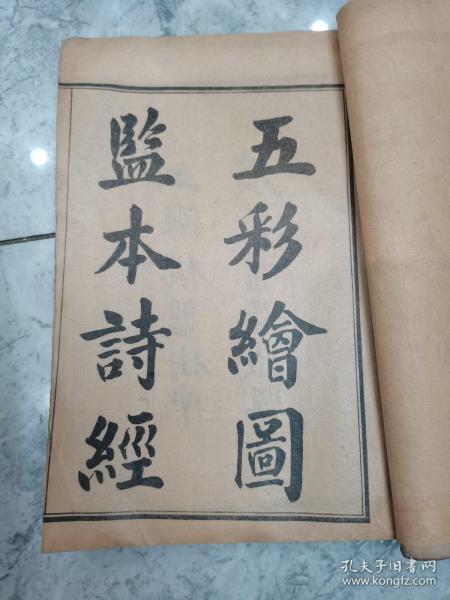 五彩繪圖
監本詩經
孔夫子旧书网
www.kongfz.com